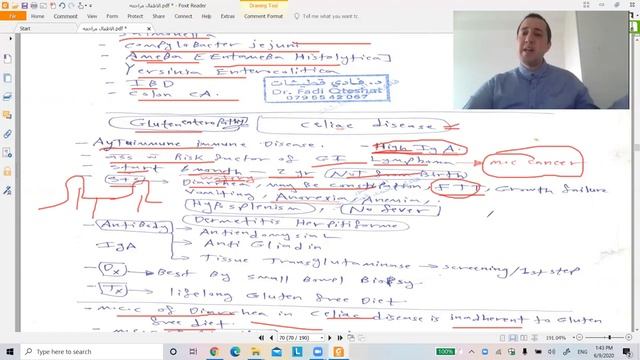 الاطفال مراجعة.pdf * - Foxit Reader
Drawing Tool
File Home Comment View Form Protect Share Help Extras Comment Format
Tell me what you want to do...
Start
الاطفال مراجعة.pdf *
Salmonella
- Campylobacter jejuni
- Ameba [Entameba Histolytica]
Yersinia Enterocolitica
- IBD
- Colon CA.
Dr. Fadi Qteshat
0795542067
Gluten enteropathy
Celiac disease
- Autoimmune immune Disease.
High IgA.
- ass w Risk factor of GI Lymphoma
m.c.c cancer
- start 6 month - 2 yr Not from Birth
- Diarrhea, may be constipation, FTT, Growth failure
Vomiting, Anorexia, Anemia,
Hyposplenism, No fever
Dermetitis Herpitiforme
- Antibody
IgA
Antiendomysial
Anti Gliadin
Tissue Transglutaminase → screening/1st step
- Dx → Best By Small Bowel Biopsy
- Tx → lifelong Gluten free Diet.
- M.C.C of Diarrhea in Celiac disease is inadherent to Gluten
free diet.
70 (70 / 190)
191.04%
Type here to search
100%
ENG
1:43 PM
6/9/2020